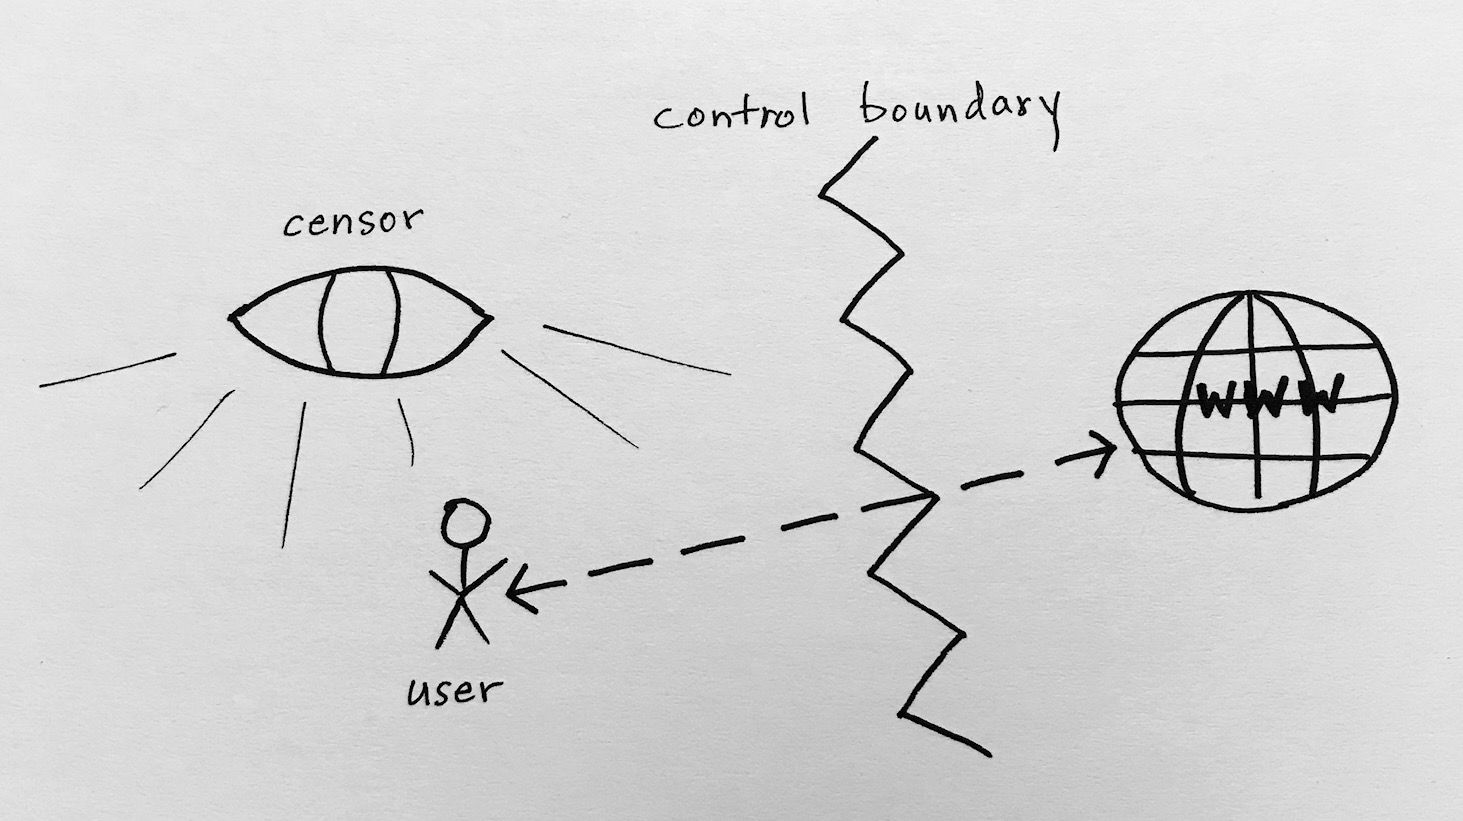 control boundary
censor
WWW
user